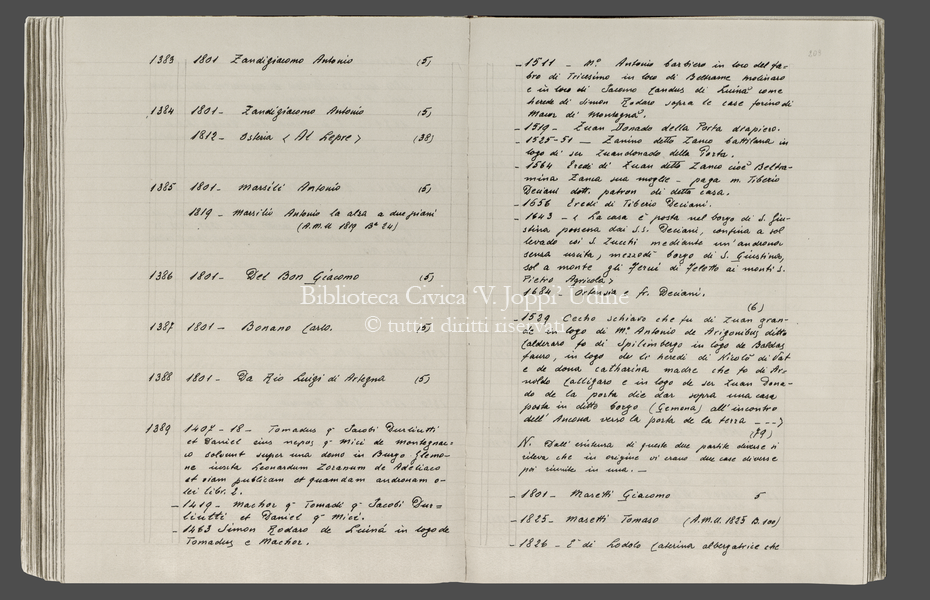 1383 1801 Zandigiacomo Antonio (5)
1384 1801- Zandigiacomo Antonio (5)
1812- Osteria < Al Lepre > (38)
1385 1801- Marsili Antonio (5)
1819- Marsilio Antonio la alza a due piani
(A.M.U 1819 Ba 24)
1386 1801- Del Bon Giacomo (5)
1387 1801- Bonano Carlo. (5)
1388 1801- Da Rio Luigi di Artegna (5)
1389 1407-18- Tomadus q Jacobi Durliutti
et Daniel eius nepos q Mici de montegnac-
o solvunt super una domo in Burgo Glemo-
ne iuxta Leonardum Zoranum de Adeliaco
et viam publicam et quamdam andronam o-
lei libr. 2.
-1419- Machor q Tomadi q Jacobi Dur=
liutti et Daniel q Mici.
-1463 Simon Rodaro de Luinà in logo de
Tomadus e Machor.
203
-1511- Mo Antonio barbiero in loco del fa-
bro di Tricesimo in loco di Beltrame molinaro
e in loco di Jacomo Candus di Luinà come
herede di Simon Rodaro sopra le case forino di
Maior di montegnà.
-1519- Zuan Donado della Porta drapiero.
-1525-51- Zanino detto Zanco battilana in
logo di ser Zuandonado della Porta.
-1564 Eredi di Zuan detto Zanco cioè Beltra-
mina Zanca sua moglie - paga m. Tiberio
Deciani dott. patron di detta casa.
-1656 Eredi di Tiberio Deciani.
-1643- < La casa è posta nel borgo di S. Giu-
stina possessa dai S.S. Deciani, confina a sol
levado coi S. Zucchi mediante un'androna
senza uscita, mezzodi borgo di S. Giustina,
sol a monte gli di Feletto ai monti S.
Pietro Agricola>
1684- Ortensia e fr. Deciani.
(6)
-1529 Cecho schiavo che fu di Zuan gran-
de in logo di Mo Antonio de Arigonibus ditto
Calderaro fo di Spilimbergo in logo de Baldas
in logo de li heredi di Nicolò di Vat
e de dona Catharina madre che fo di Ar-
noldo Calligaro e in logo de ser Zuan Dona-
do de la porta die dar sopra una casa
posta in ditto borgo (Gemona) all'incontro
dell'Ancona verso la porta de la terra --->
(79)
N. Dall'esistenza di queste due partite diverse si
rileva che in origine vi erano due case diverse
poi riunite in una.-
-1801- Maretti Giacomo 5
-1825- Maretti Tomaso (A.M.U. 1825 B. 100)
-1826- È di Lodolo Caterina albergatrice che
Biblioteca Civica 'V. Joppi' Udine
© tutti i diritti riservati